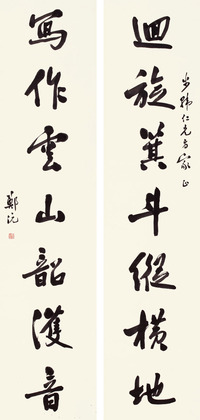 迴旋箕斗縱橫地
步 仁兄方家正
寫作雲山韶濩音
鄭沅